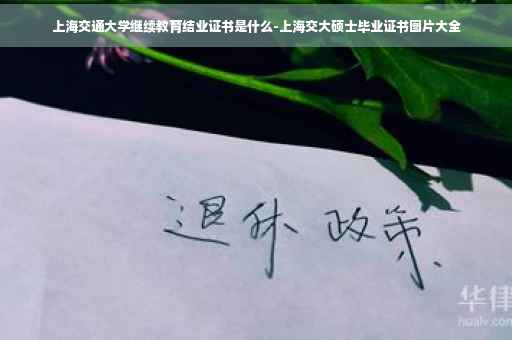 上海交通大学继续教育结业证书是什么-上海交大硕士毕业证书图片大全
退休 政策
华律
hualv.com